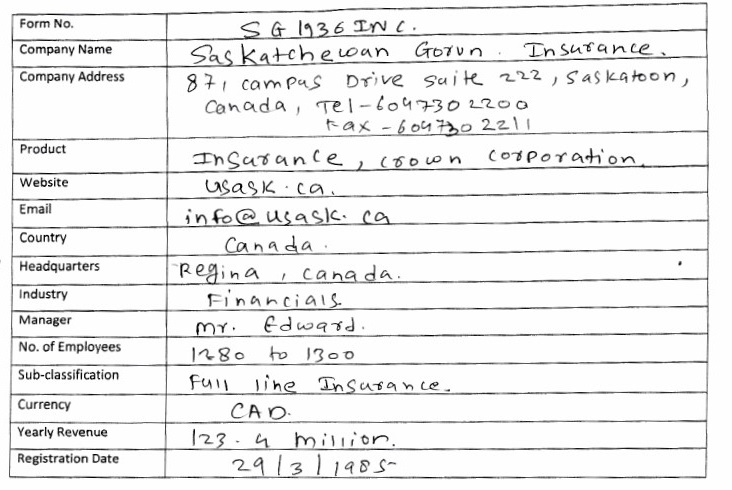 Form No. SG1936INC.
Company Name Saskatchewan Gorvn. Insurance.
Company Address 87, campus Drive suite 222, Saskatoon,
Canada, Tel-6047302200
Fax-6047302211
Product Insurance, crown corporation.
Website usask.ca.
Email info@usask.ca
Country Canada.
Headquarters Regina, Canada.
Industry Financials
Manager Mr. Edward.
No. of Employees 1280 to 1300
Sub-classification Full line Insurance.
Currency CAD.
Yearly Revenue 123.4 million.
Registration Date 29/3/1985